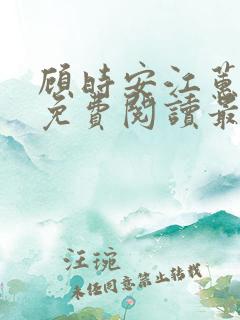 顧時安江蕙
免費閱讀最
汪琬
未经同意禁止转载